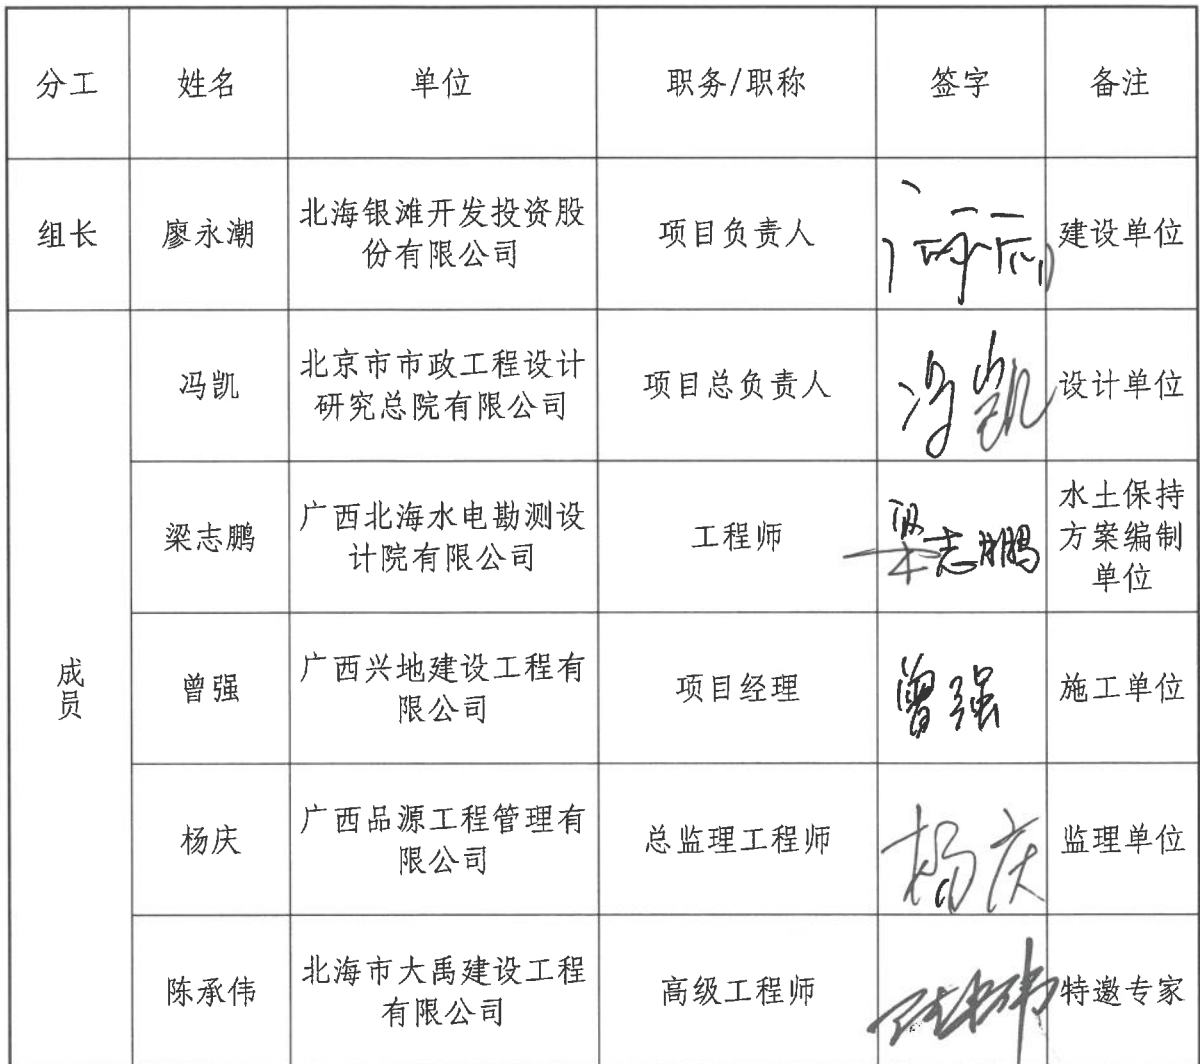 分工 姓名 单位 职务/职称 签字 备注
组长 廖永潮 北海银滩开发投资股
份有限公司 项目负责人 建设单位
成员
冯凯 北京市市政工程设计
研究总院有限公司 项目总负责人 冯凯 设计单位
梁志鹏 广西北海水电勘测设
计院有限公司 工程师 梁志鹏 水土保持
方案编制
单位
曾强 广西兴地建设工程有
限公司 项目经理 曾强 施工单位
杨庆 广西品源工程管理有
限公司 总监理工程师 杨庆 监理单位
陈承伟 北海市大禹建设工程
有限公司 高级工程师 陈承伟 特邀专家